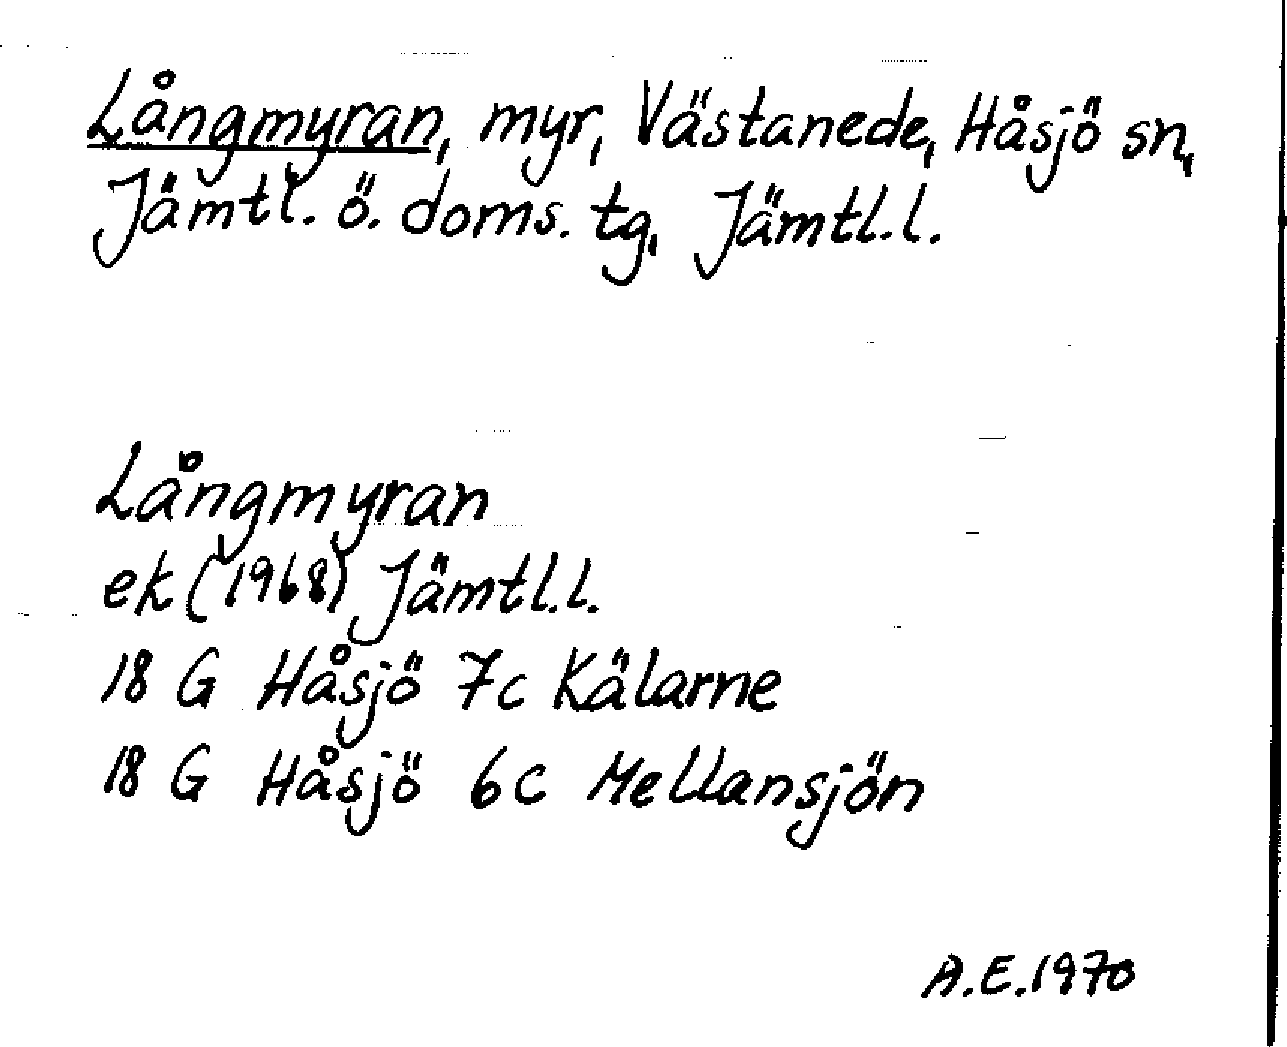 Långmyran, myr, Västanede, Håsjö sn,
Jämtl. ö. doms. tg, Jämtl.l.
Långmyran
ek (1968) Jämtl.l.
18 G Håsjö 7c Kälarne
18 G Håsjö 6c Mellansjön
A.E.1970